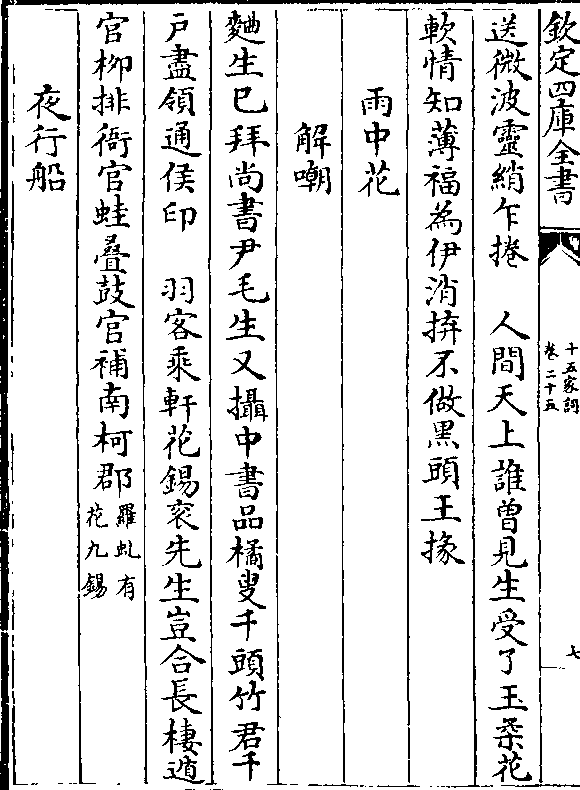 欽定四庫全書
十五家詞
卷二十五
七
送微波靈綃乍捲　人間天上誰曽見生受了玉梁花
軟情知薄福為伊消拚不做黑頭王掾
雨中花
解嘲
麯生已拜尚書尹毛生又攝中書品橘叟千頭竹君千
戶盡領通侯印　羽客乘軒花錫衮先生豈合長棲遁
官栁排衙官蛙疊鼓官補南柯郡羅虬有
花九錫
夜行船